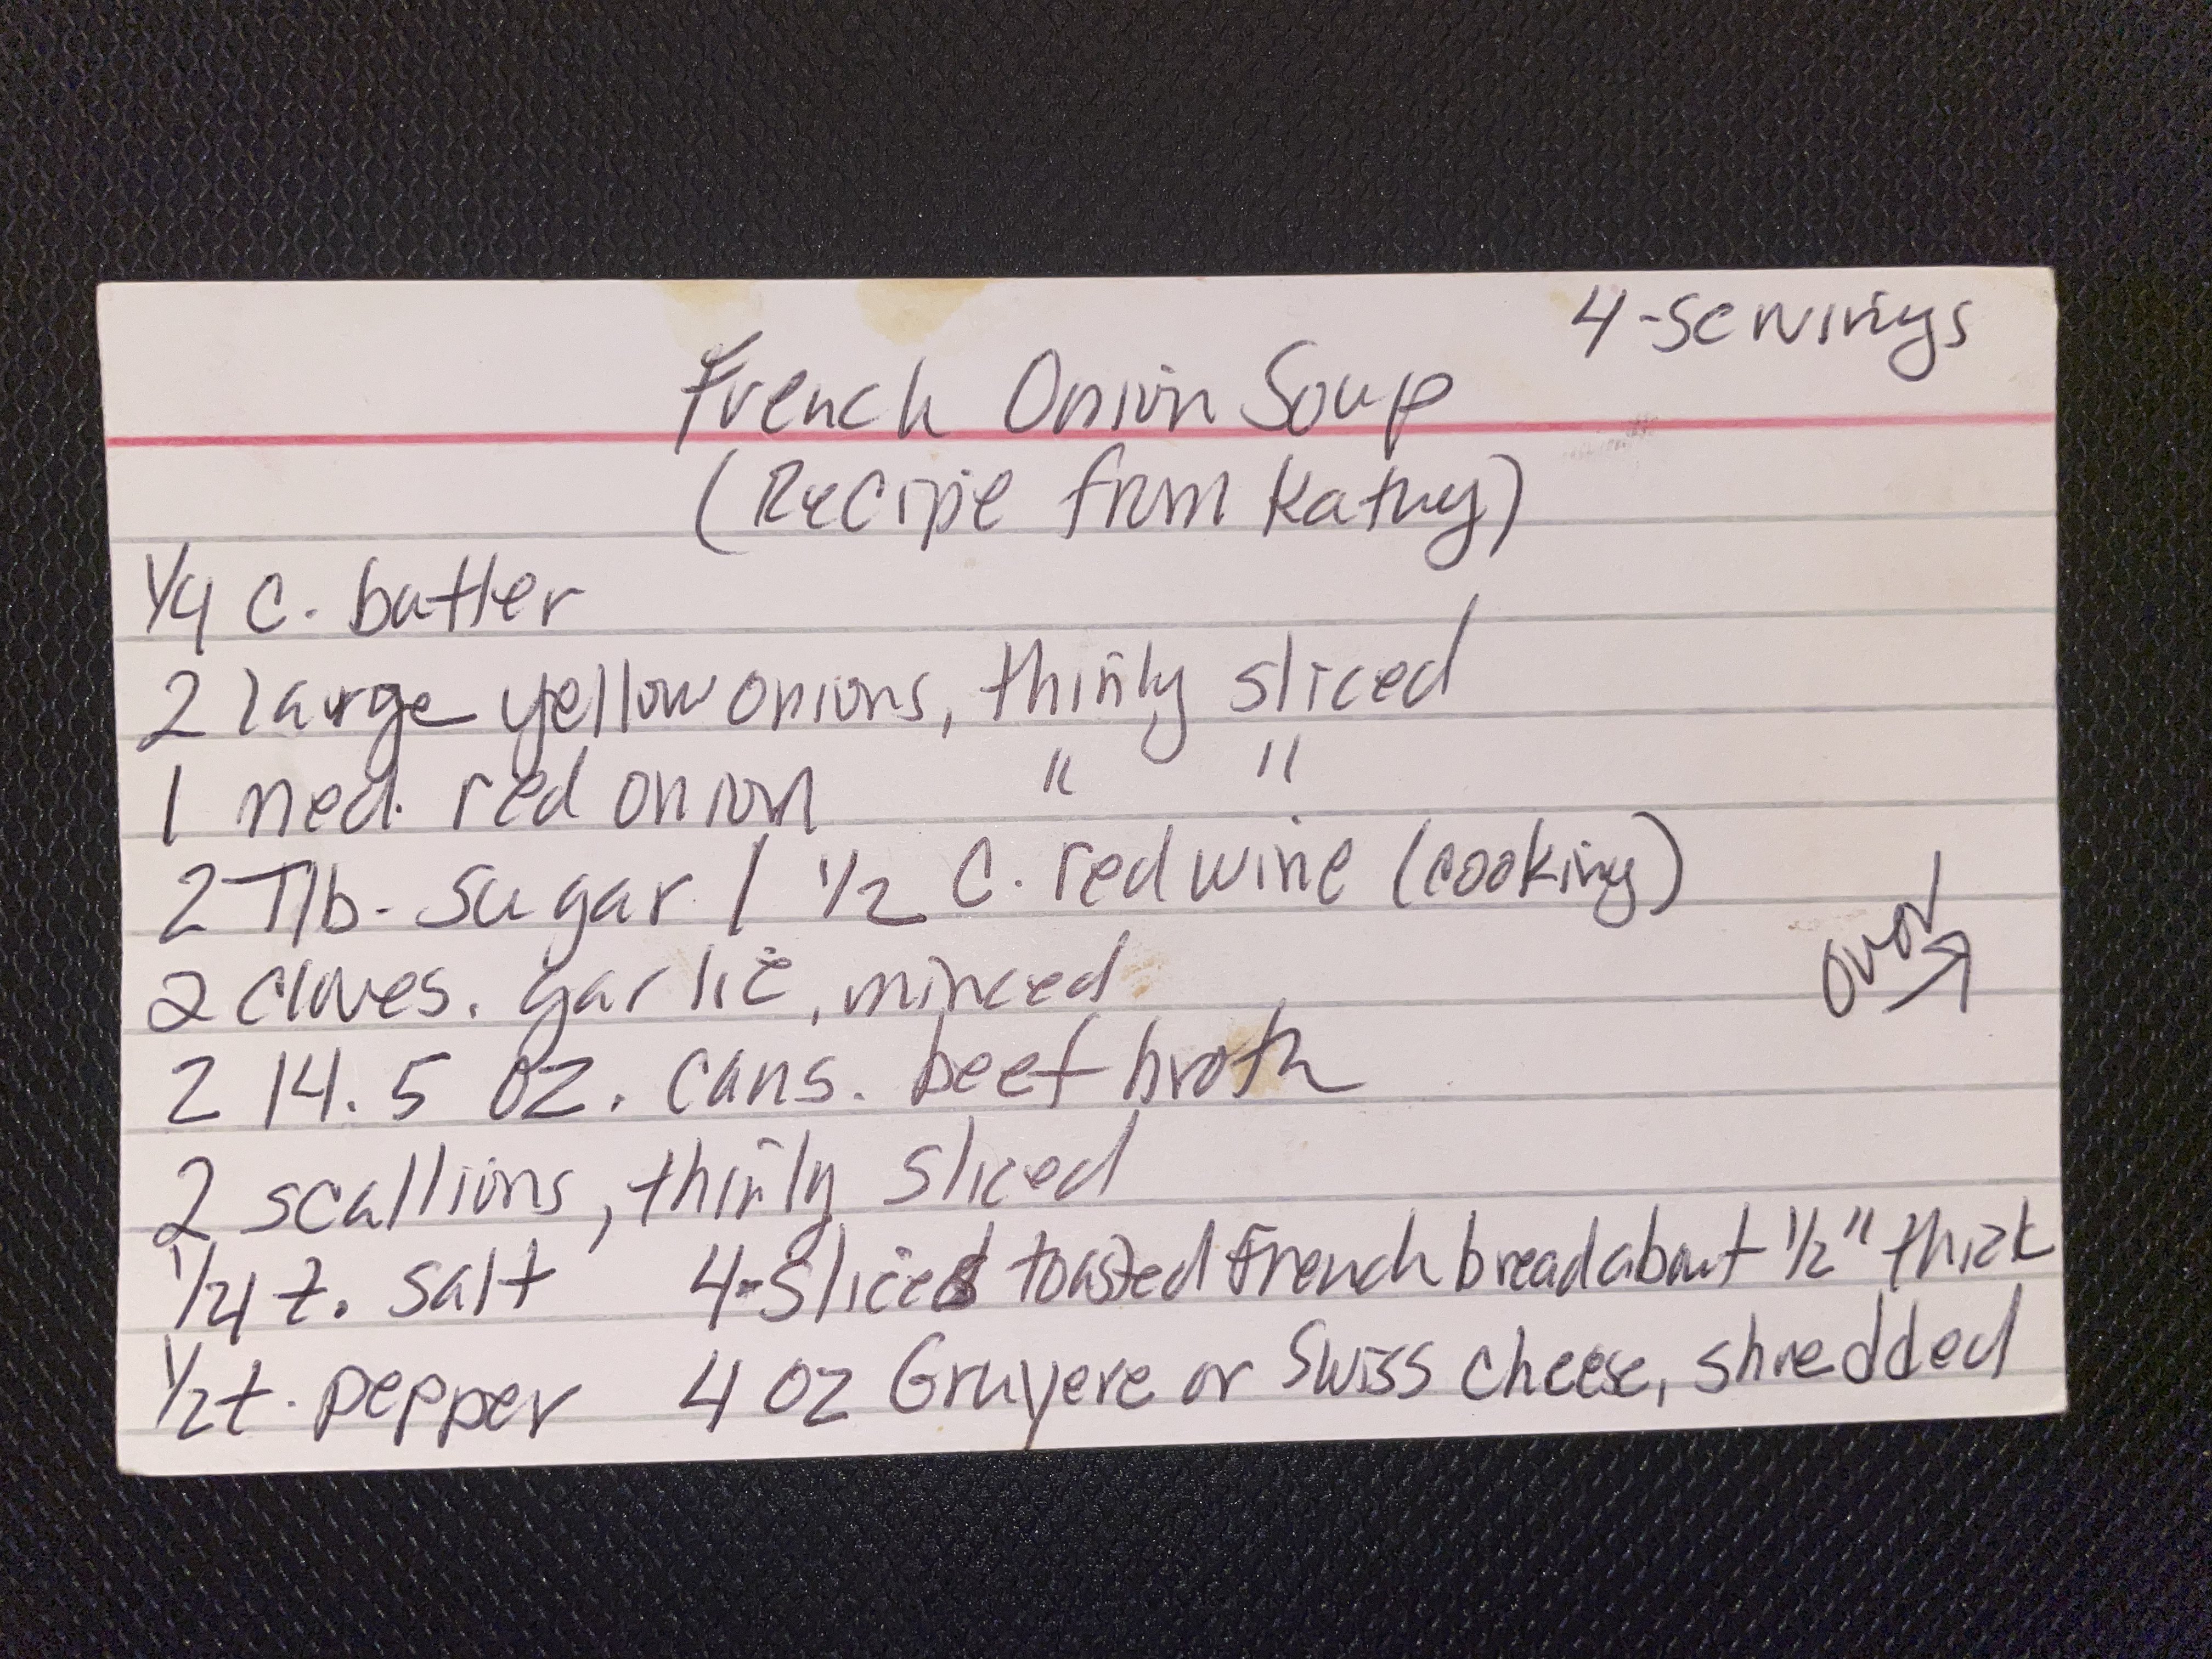 4-servings
French Onion Soup
(Recipe from Kathy)
1/4 c. butter
2 large yellow onions, thinly sliced
1 med. red onion " "
2 Tlb. sugar / 1/2 C. red wine (cooking)
over →
2 cloves. garlic, minced
2 14.5 oz. cans. beef broth
2 scallions, thinly sliced
1/4 t. salt 4-slices toasted French bread about 1/2" thick
1/2 t. pepper 4 oz Gruyere or Swiss cheese, shredded